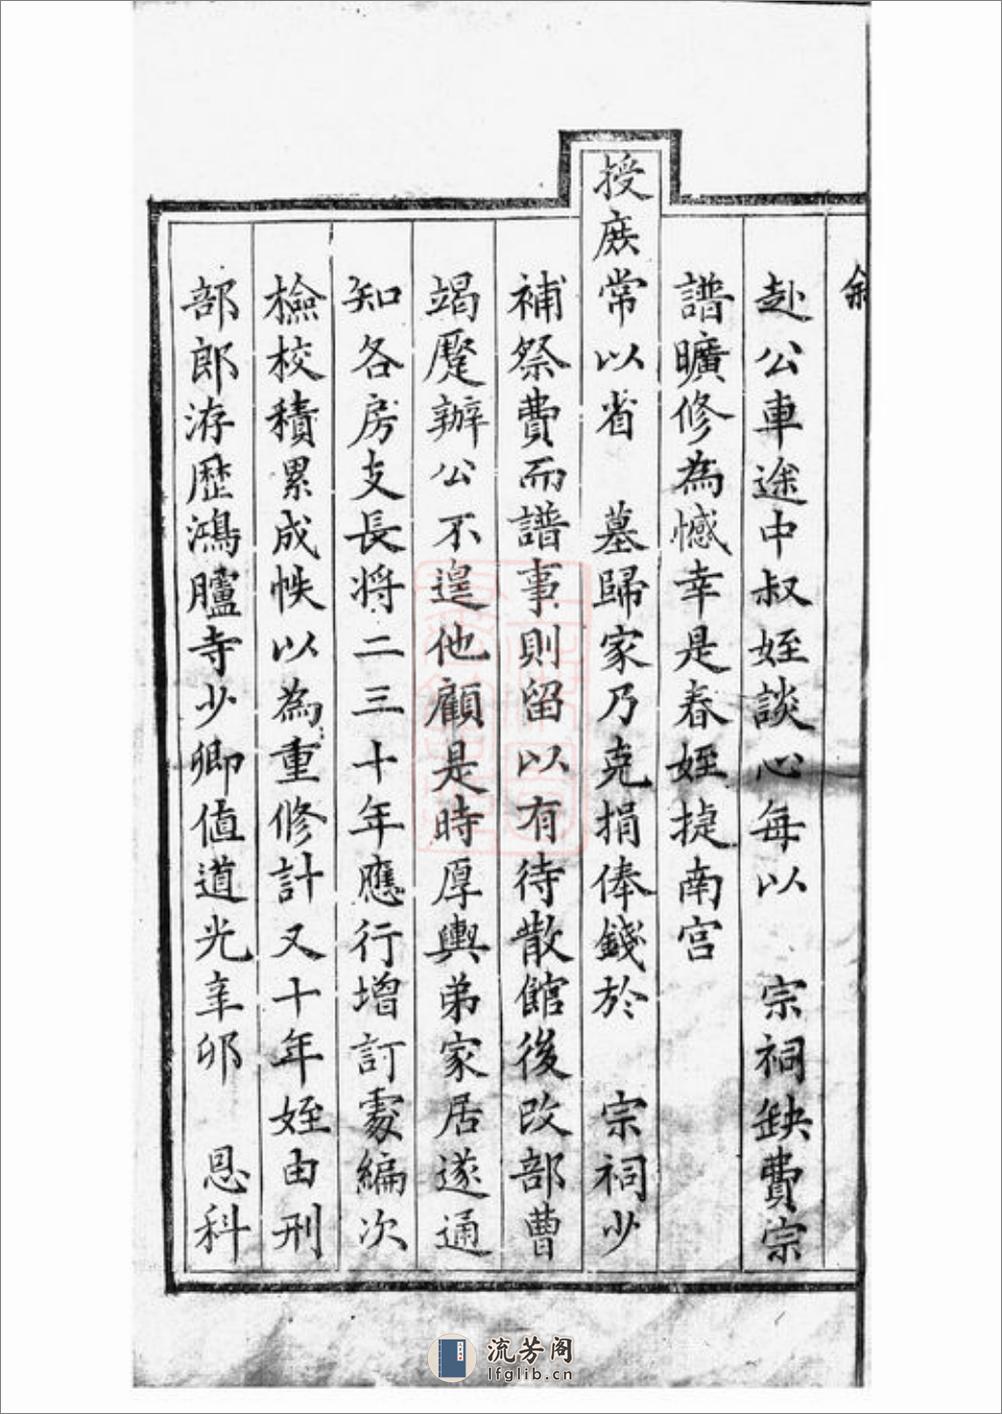 敘
赴公車途中叔姪談心每以　宗祠缺費宗
譜曠修為憾幸是春姪捷南宫
授庶常以省　墓歸家乃克捐俸錢於　宗祠少
補祭費而譜事則留以有待散館後改部曹
竭蹷辦公不遑他顧是時厚輿弟家居遂通
知各房支長將二三十年應行增訂處編次
檢校積累成帙以為重修計又十年姪由刑
部郎洊歷鴻臚寺少卿值道光辛卯　恩科
流芳阁
lfglib.cn